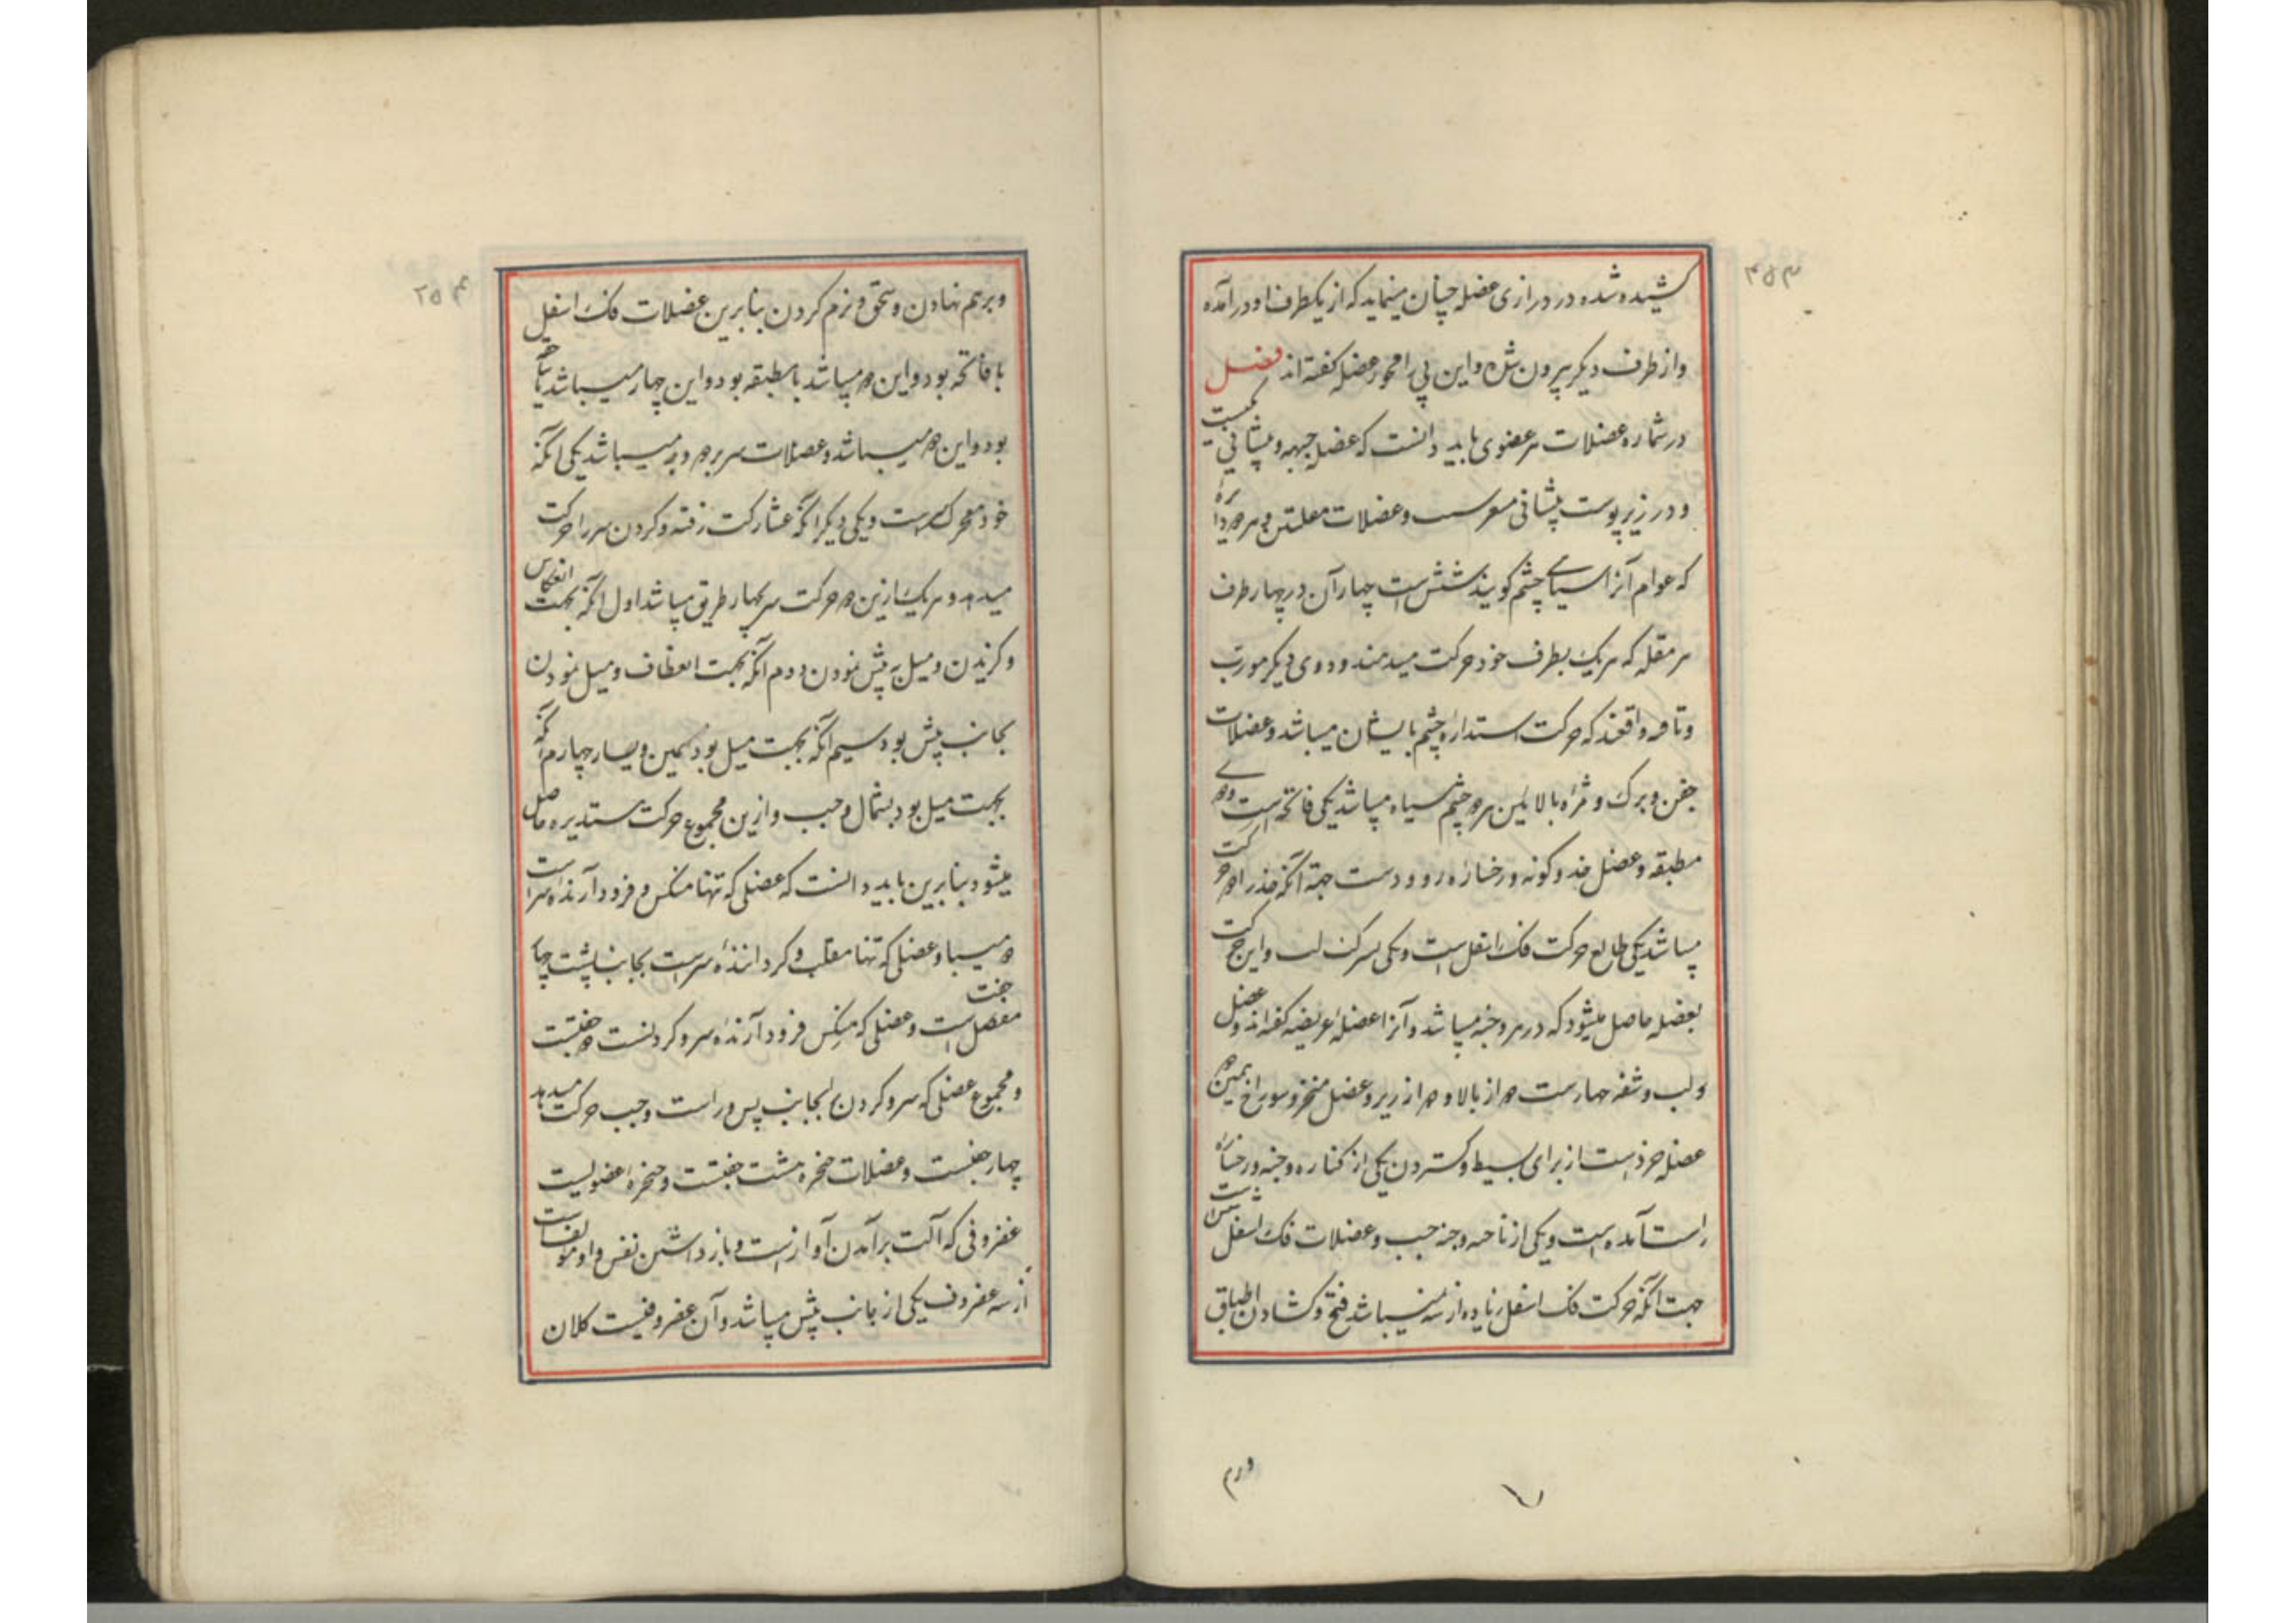 ۲۵۳
کشیده شده در درازی عضله چنان مینماید که از یکطرف او در آمده
و از طرف دیکر بیرون شده و این پی را محور عضله کفته اند فصل
در شماره عضلات هر عضوی باید دانست که عضل جبهه و پیشانی یکیست
و در زیر پوست پیشانی و عضلات مقلتین و هر دو
که عوام آنرا سیاهی چشم کویند شش است چهار آن در چهار طرف
هر مقله که هر یک بطرف خود حرکت میدهند و دوی دیکر مورب
واقعند که حرکت استداره چشم بایشان میباشد و عضلات
جفن و برک و مژه بالایین هر دو چشم سیاه میباشد یکی فاتحه است و دو
مطبقه و عضل خد و کونه و رخساره رو دو است جهة آنکه خد را دو حرکت
میباشد یکی طالع حرکت فک اسفل است و یکی بشرکت لب و این حرکت
بعضله حاصل میشود که در هر وجنه میباشد و آنرا عضله عریضه کفته اند و عضل
و لب و شفه چهار است دو از بالا و دو از زیر و عضل منخر و سوراخ بینی دو
عضله خرد است از برای بسیط و کستردن یکی از کناره وجنه و رخساره
راست آمده است و یکی از ناحیه وجنه چپ و عضلات فک اسفل
جهت آنکه حرکت فک اسفل زیاده از سه نمیباشد فتح و کشادن اطباق
و برهم
۲۵۴
و برهم نهادن و سحق و نرم کردن بنابرین عضلات فک اسفل
یا فاتحه بود و این دو میباشد یا مطبقه بود و این چهار میباشد یا
بود و این دو میباشد و عضلات سر بر دو وجه میباشد یکی آنکه
خود محرک سر است و یکی دیکر آنکه بمشارکت رقبه و کردن سر را حرکت
میدهد و هر یک ازین دو حرکت سر بچهار طریق میباشد اول آنکه بجهت انتکاس
و میل به پیش نمودن دوم آنکه بجهت انعطاف و میل نمودن
بجانب پیش بود سیم آنکه بجهت میل بود بیمین و یسار چهارم آنکه
بجهت میل بود بشمال و چپ و ازین مجموع حرکت مستدیره حاصل
میشود بنابرین باید دانست که عضلی که تنها منکس و فرود آرنده سر است
دو میباشد و عضلی که تنها مقلب و کرداننده سر است بجانب پشت چهار جفت
است و عضلی که منکس فرود آرنده سر و کردنست دو جفتست
و مجموع عضلی که سر و کردن بجانب پس و راست و چپ حرکت میدهد
چهار جفتست و عضلات حنجره هشت جفتست و حنجره عضویست
غضروفی که آلت برآمدن آواز است و باز داشتن نفس و او مؤلفست
از سه غضروف یکی از جانب پیش میباشد و آن غضروفیست کلان